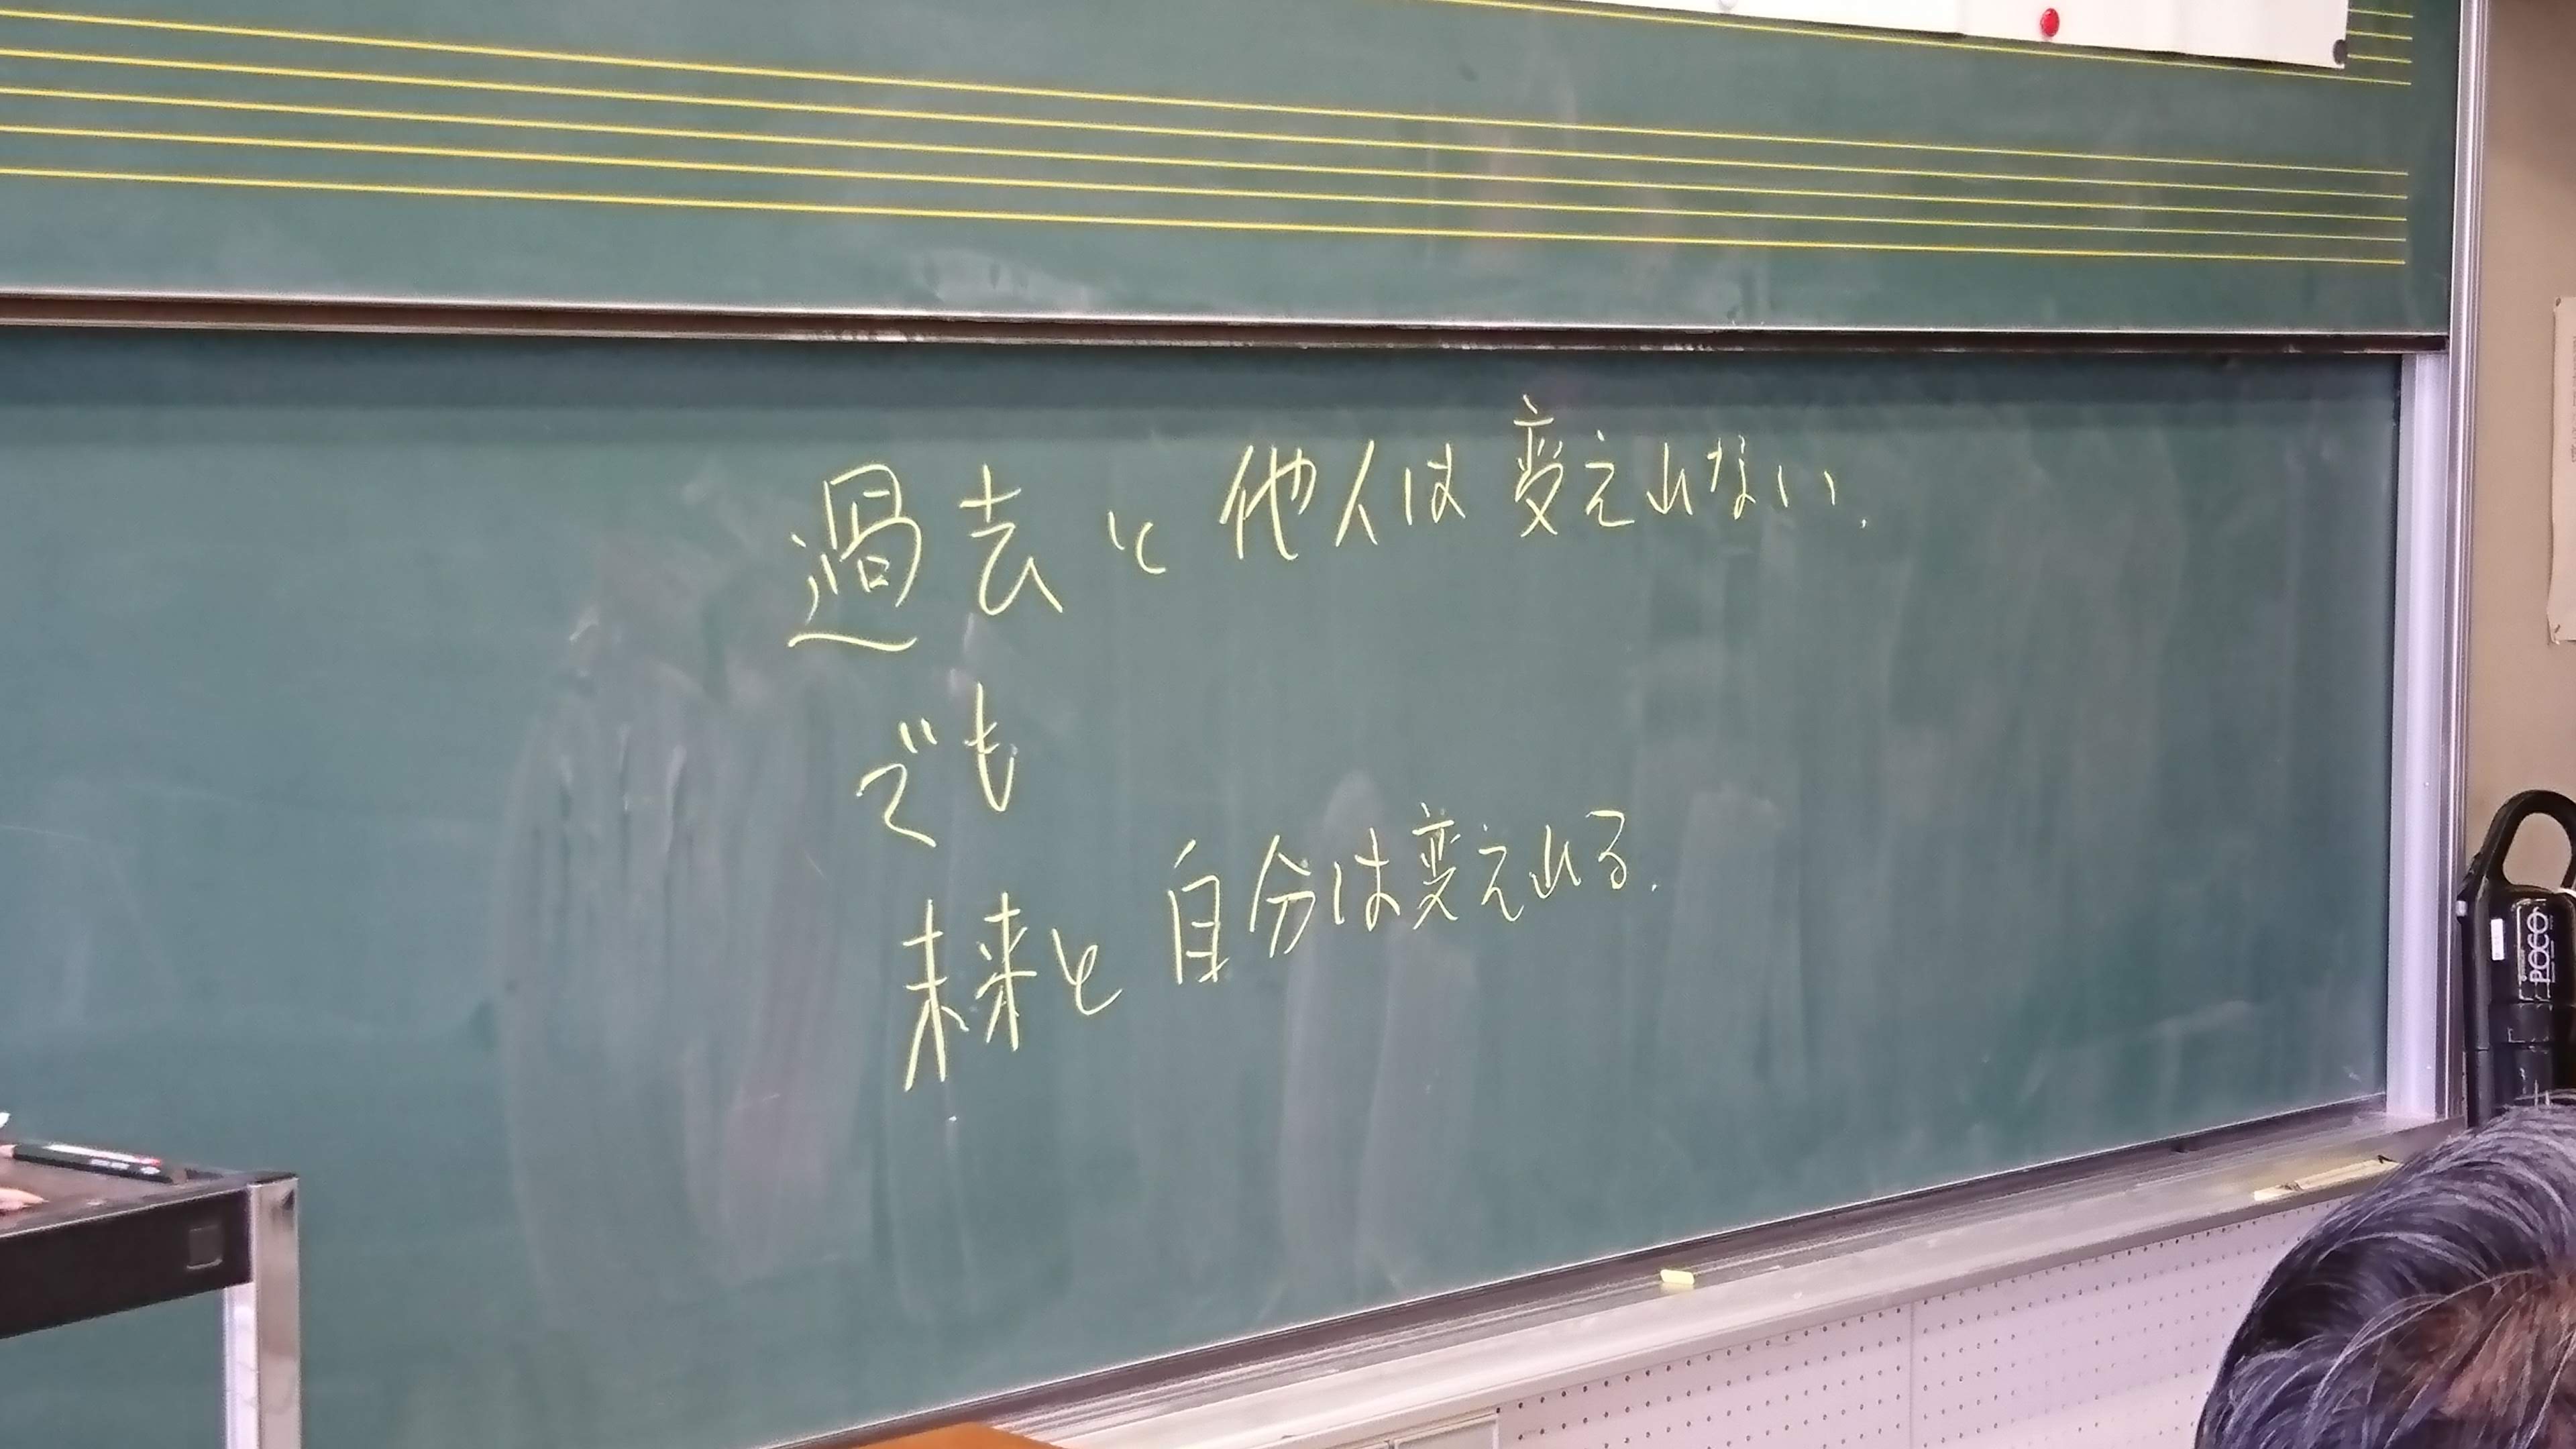 過去と他人は変えれない.
でも
未来と自分は変えれる.
POCO